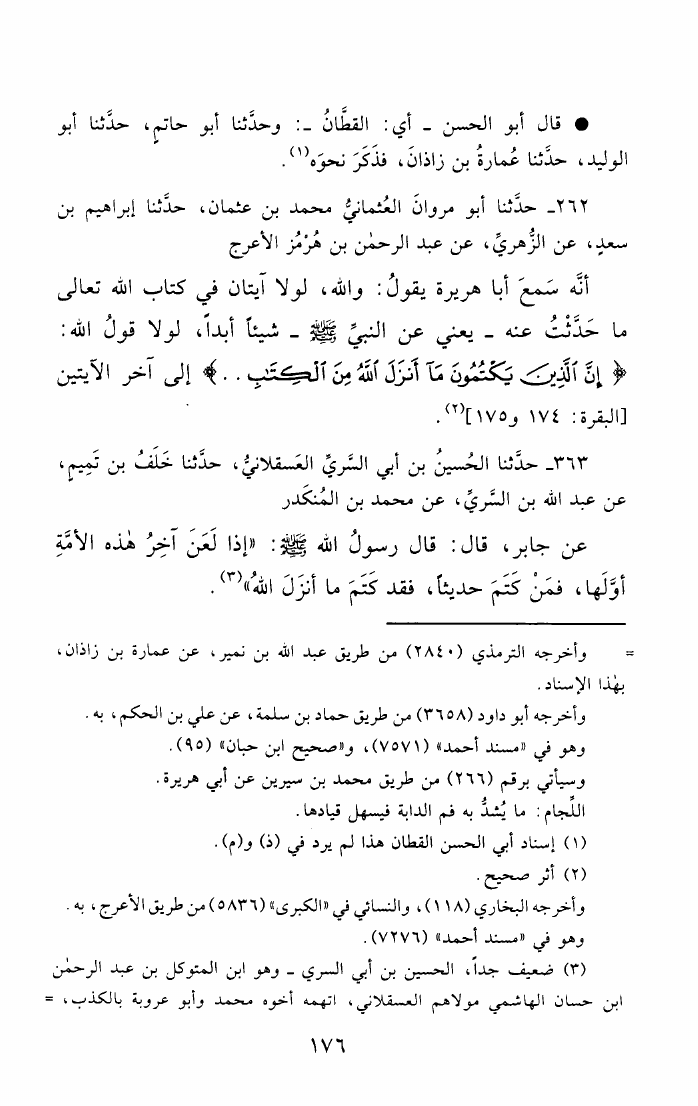 ● قال أبو الحسن ـ أي: القطَّانُ ـ: وحدَّثنا أبو حاتمٍ، حدَّثنا أبو
الوليد، حدَّثنا عُمارةُ بن زاذانَ، فذَكَرَ نحوَه(١).
٢٦٢ـ حدَّثنا أبو مروانَ العُثمانيُّ محمد بن عثمان، حدَّثنا إبراهيم بن
سعدٍ، عن الزُّهريِّ، عن عبد الرحمٰن بن هُرْمُز الأعرج
أنَّه سَمعَ أبا هريرة يقولُ: والله، لولا آيتان في كتاب الله تعالى
ما حَدَّثْتُ عنه ـ يعني عن النبيِّ ﷺ ـ شيئاً أبداً، لولا قولُ الله:
﴿ إِنَّ ٱلَّذِينَ يَكْتُمُونَ مَآ أَنزَلَ ٱللَّهُ مِنَ ٱلْكِتَٰبِ . . ﴾ إلى آخر الآيتين
[البقرة: ١٧٤ و١٧٥](٢).
٣٦٣ـ حدَّثنا الحُسينُ بن أبي السَّريِّ العَسقلانيُّ، حدَّثنا خَلَفُ بن تَمِيمٍ،
عن عبد الله بن السَّريِّ، عن محمد بن المُنكَدر
عن جابر، قال: قال رسولُ الله ﷺ: «إذا لَعَنَ آخِرُ هٰذه الأمَّةِ
أوَّلَها، فمَنْ كَتَمَ حديثاً، فقد كَتَمَ ما أنزَلَ اللهُ»(٣).
= وأخرجه الترمذي (٢٨٤٠) من طريق عبد الله بن نمير، عن عمارة بن زاذان،
بهٰذا الإسناد.
وأخرجه أبو داود (٣٦٥٨) من طريق حماد بن سلمة، عن علي بن الحكم، به.
وهو في «مسند أحمد» (٧٥٧١)، و«صحيح ابن حبان» (٩٥).
وسيأتي برقم (٢٦٦) من طريق محمد بن سيرين عن أبي هريرة.
اللِّجام: ما يُشدُّ به فم الدابة فيسهل قيادها.
(١) إسناد أبي الحسن القطان هذا لم يرد في (ذ) و(م).
(٢) أثر صحيح.
وأخرجه البخاري (١١٨)، والنسائي في «الكبرى» (٥٨٣٦) من طريق الأعرج، به.
وهو في «مسند أحمد» (٧٢٧٦).
(٣) ضعيف جداً، الحسين بن أبي السري ـ وهو ابن المتوكل بن عبد الرحمٰن
ابن حسان الهاشمي مولاهم العسقلاني، اتهمه أخوه محمد وأبو عروبة بالكذب، =
١٧٦